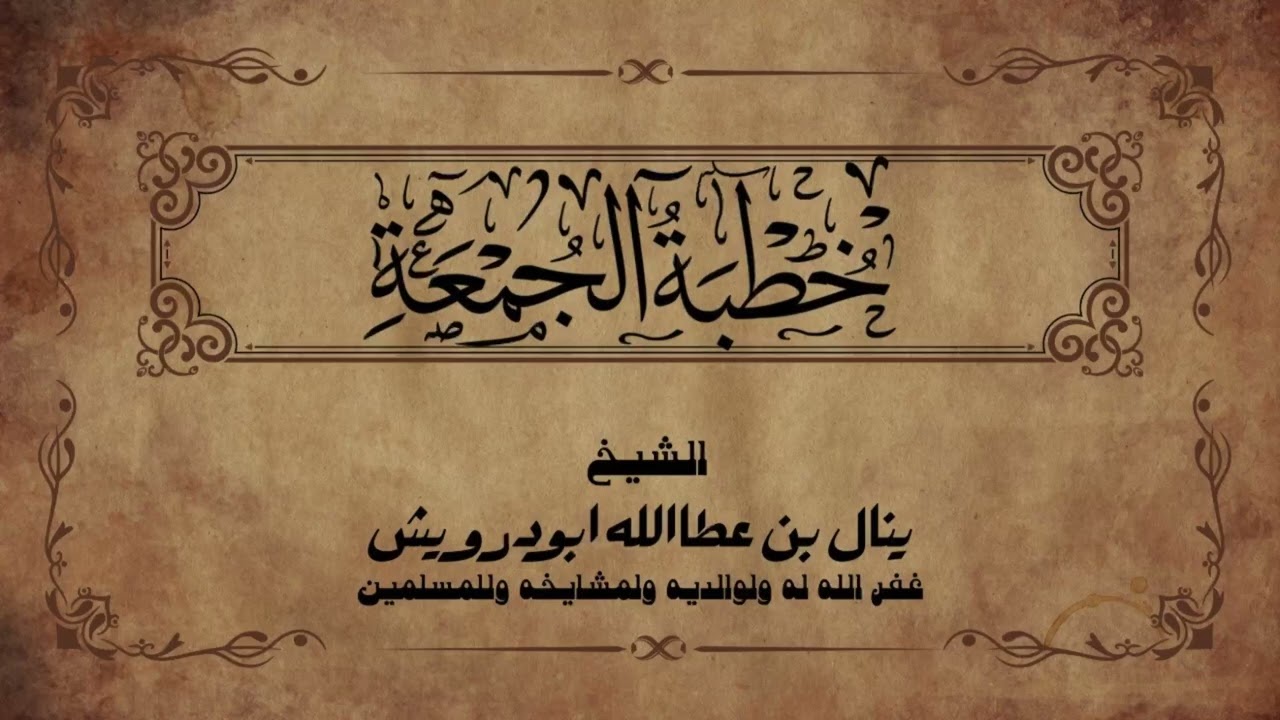 خُطْبَةُ الْجُمْعَةِ
الشيخ
ينال بن عطاالله ابودرويش
غفر الله له ولوالديه ولمشايخه وللمسلمين